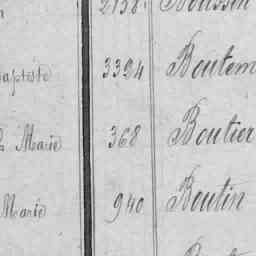 2138. Boussin
aptiste 3394 Boutem
Marie 368 Boutier
Marie 940 Boutin